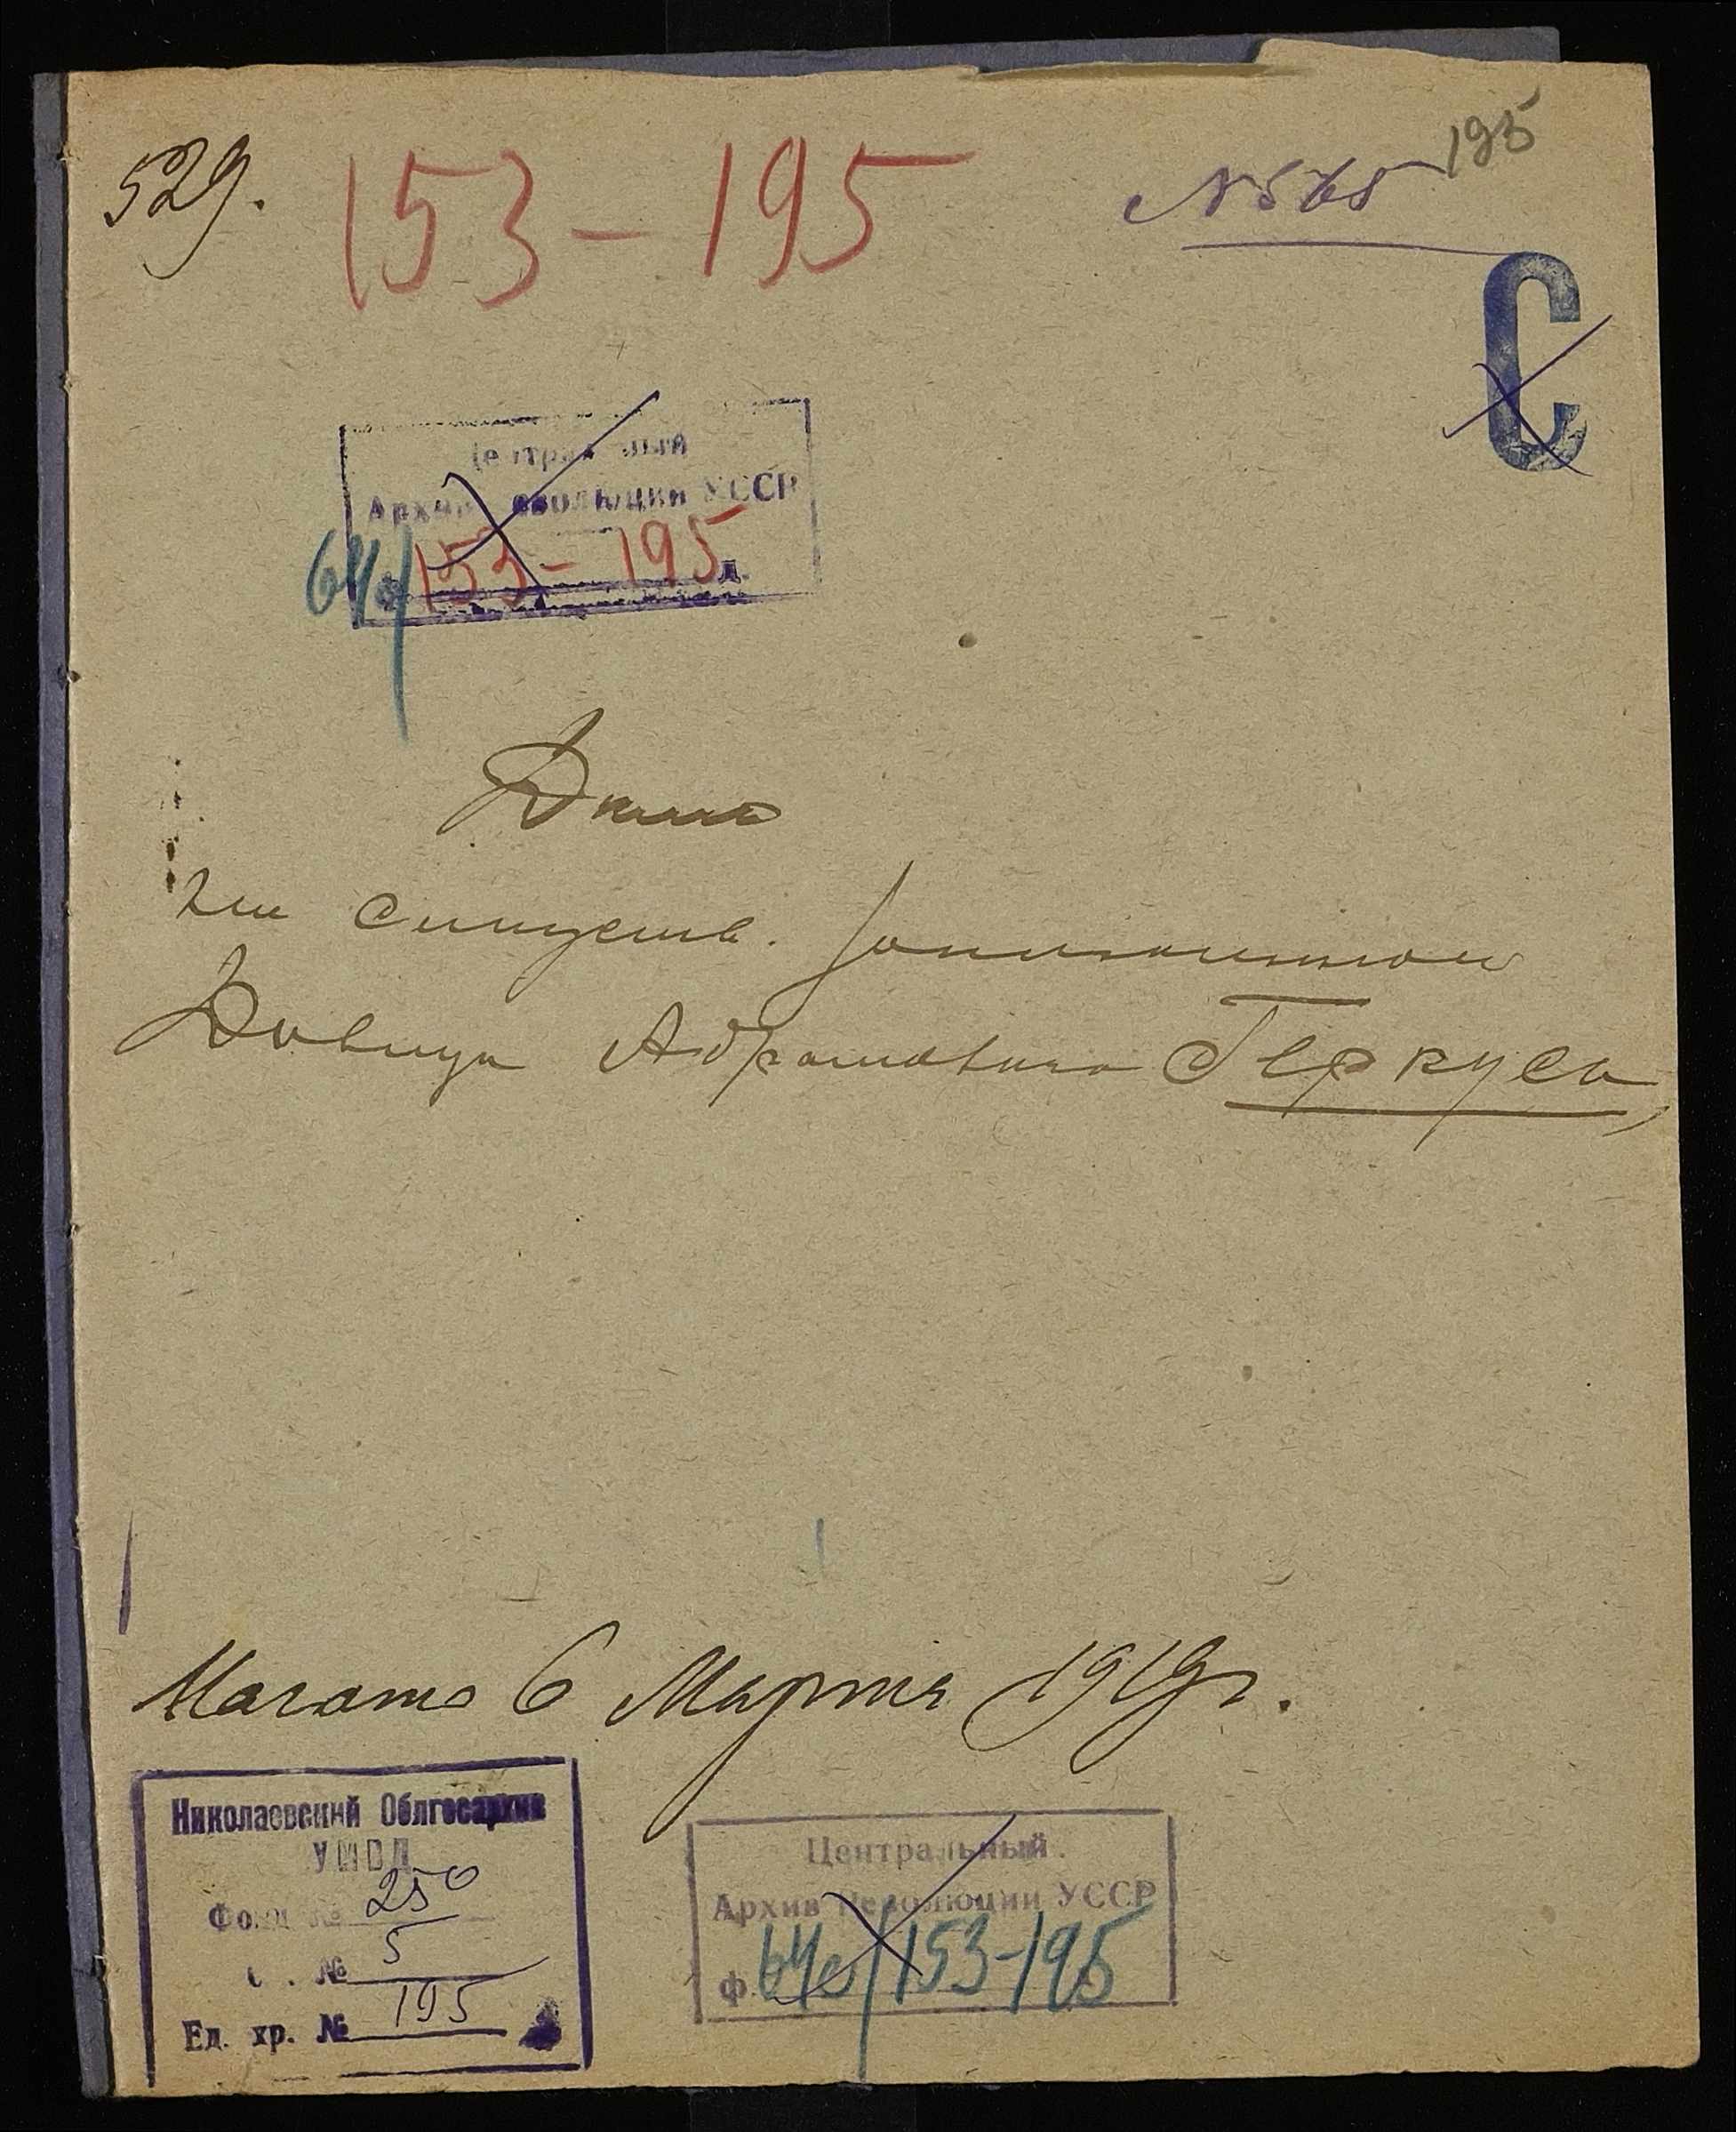 529.
153-195
195
№ 565
С
Центральный
Архив Революции УССР
153-195
Дело
Давида Абрамовича Геркуса,
Начато 6 Марта 1919 г.
Николаевский Облгосархив
УМВД
Фонд № 250
№ 5
Ед. хр. № 195
Центральный
Архив Революции УССР
Ф. 153-195